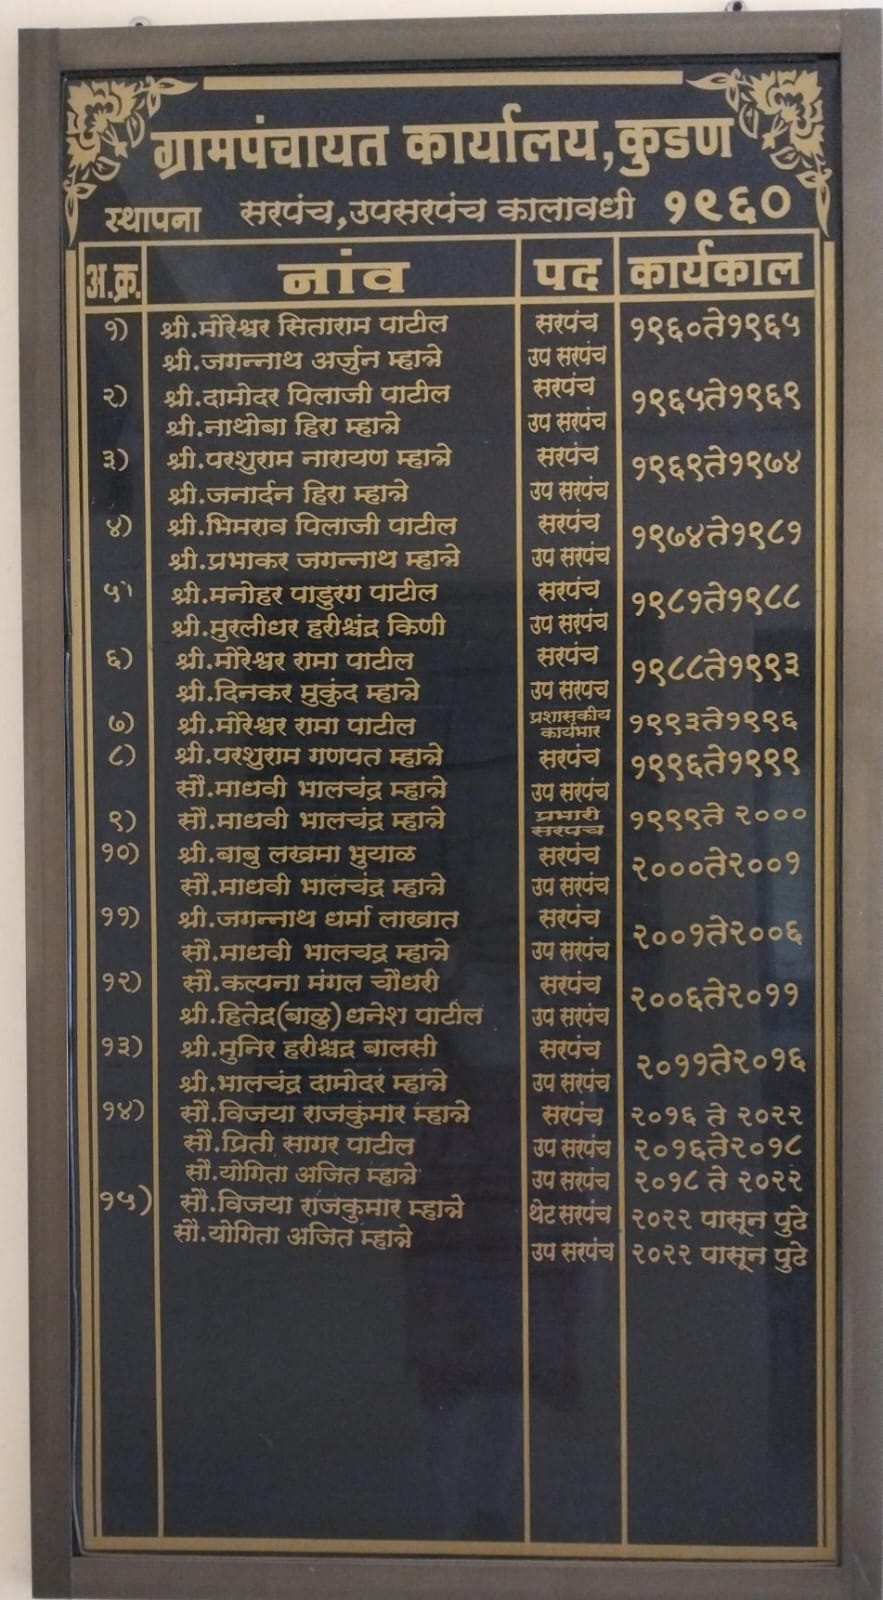 ग्रामपंचायत कार्यालय,कुडण
स्थापना सरपंच,उपसरपंच कालावधी १९६०
अ.क्र. नांव पद कार्यकाल
१) श्री.मोरेश्वर सिताराम पाटील सरपंच १९६०ते१९६५
श्री.जगन्नाथ अर्जुन म्हात्रे उप सरपंच
२) श्री.दामोदर पिलाजी पाटील सरपंच १९६५ते१९६९
श्री.नाथोबा हिरा म्हात्रे उप सरपंच
३) श्री.परशुराम नारायण म्हात्रे सरपंच १९६९ते१९७४
श्री.जनार्दन हिरा म्हात्रे उप सरपंच
४) श्री.भिमराव पिलाजी पाटील सरपंच १९७४ते१९८१
श्री.प्रभाकर जगन्नाथ म्हात्रे उप सरपंच
५) श्री.मनोहर पाडुरग पाटील सरपंच १९८१ते१९८८
श्री.मुरलीधर हरीश्चंद्र किणी उप सरपंच
६) श्री.मोरेश्वर रामा पाटील सरपंच १९८८ते१९९३
श्री.दिनकर मुकुंद म्हात्रे उप सरपच
७) श्री.मोरेश्वर रामा पाटील प्रशासकीय कार्यभार १९९३ते१९९६
८) श्री.परशुराम गणपत म्हात्रे सरपंच १९९६ते१९९९
सौ.माधवी भालचंद्र म्हात्रे उप सरपंच
९) सौ.माधवी भालचंद्र म्हात्रे प्रभारी सरपंच १९९९ते २०००
१०) श्री.बाबु लखमा भुयाळ सरपंच २०००ते२००१
सौ.माधवी भालचंद्र म्हात्रे उप सरपंच
११) श्री.जगन्नाथ धर्मा लाखात सरपंच २००१ते२००६
सौ.माधवी भालचद्र म्हात्रे उप सरपंच
१२) सौ.कल्पना मंगल चौधरी सरपंच २००६ते२०११
श्री.हितेद्र(बाळु)धनेश पाटील उप सरपंच
१३) श्री.मुनिर हरीश्चद्र बालसी सरपंच २०११ते२०१६
श्री.भालचंद्र दामोदर म्हात्रे उप सरपंच
१४) सौ.विजया राजकुमार म्हात्रे सरपंच २०१६ ते २०२२
सौ.प्रिती सागर पाटील उप सरपंच २०१६ते२०१८
सौ.योगिता अजित म्हात्रे उप सरपंच २०१८ ते २०२२
१५) सौ.विजया राजकुमार म्हात्रे थेट सरपंच २०२२ पासून पुढे
सौ.योगिता अजित म्हात्रे उप सरपंच २०२२ पासून पुढे